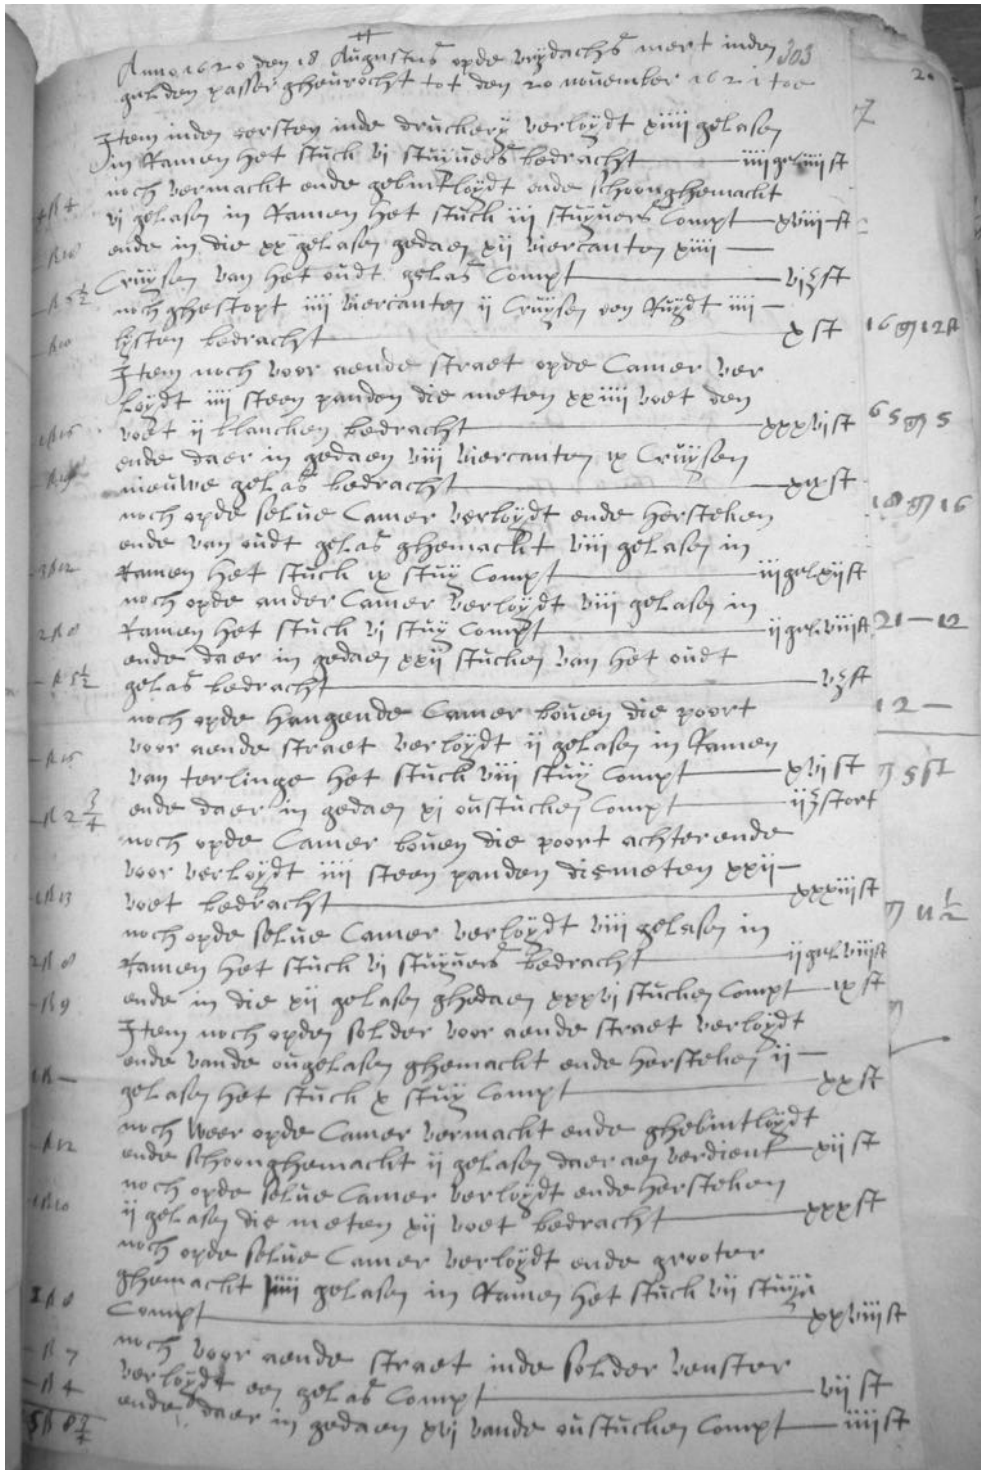 Anno 1620 den 18 Augustus opde vrydachs mert inden 303
gulden passer ghewrocht tot den 20 november 1621 toe
Item inden eersten inde druckery verloydt xiiii gelasen
in Ramen het stuck vi stuyvers bedracht iiii gul iiii st
noch vermackt ende gebintloydt ende schoonghemackt
vi gelasen in Ramen het stuck iii stuyvers Compt xviii st
ende in die xx gelasen gedaen xii viercanten xiiii
Cruysen van het oudt gelas Compt
noch ghestopt iiii viercanten ii Cruysen een Ruydt iiii
lysten bedracht x st
Item noch voor aende straet opde Camer ver
loydt iiii steen panden die meten xxiiii voet den
voet ii blancken bedracht xxxvi st
ende daer in gedaen viii viercanten ix Cruysen
nieuwe gelas bedracht
noch opde selve Camer verloydt ende hersteken
ende van oudt gelas ghemackt viii gelasen in
Ramen het stuck ix stuy Compt iii gul xii st
noch opde ander Camer verloydt viii gelasen in
Ramen het stuck vi stuy Compt ii gul viii st
ende daer in gedaen xxii stucken van het oudt
gelas bedracht
noch opde hangende Camer boven die poort
voor aende straet verloydt ii gelasen in Ramen
van terlinge het stuck viii stuy Compt xvi st
ende daer in gedaen xi oustucken Compt
noch opde Camer boven die poort achter ende
voor verloydt iiii steen panden die meten xxii
voet bedracht xxxiii st
noch opde selve Camer verloydt viii gelasen in
Ramen het stuck vi stuyvers bedracht ii gul viii st
ende in die xii gelasen ghedaen xxxvi stucken Compt ix st
Item noch opden solder voor aende straet verloydt
ende vande ougelasen ghemackt ende hersteken ii
gelasen het stuck x stuy Compt xx st
noch weer opde Camer vermackt ende ghebintloydt
ende schoonghemackt ii gelasen daer aen verdient xii st
noch opde selve Camer verloydt ende hersteken
ii gelasen die meten xii voet bedracht xxx st
noch opde selve Camer verloydt ende grooter
ghemackt iiii gelasen in Ramen het stuck vii stuyv
Compt xxviii st
noch voor aende straet inde solder venster
verloydt een gelas Compt vii st
ende daer in gedaen xvi vande oustucken Compt iiii st